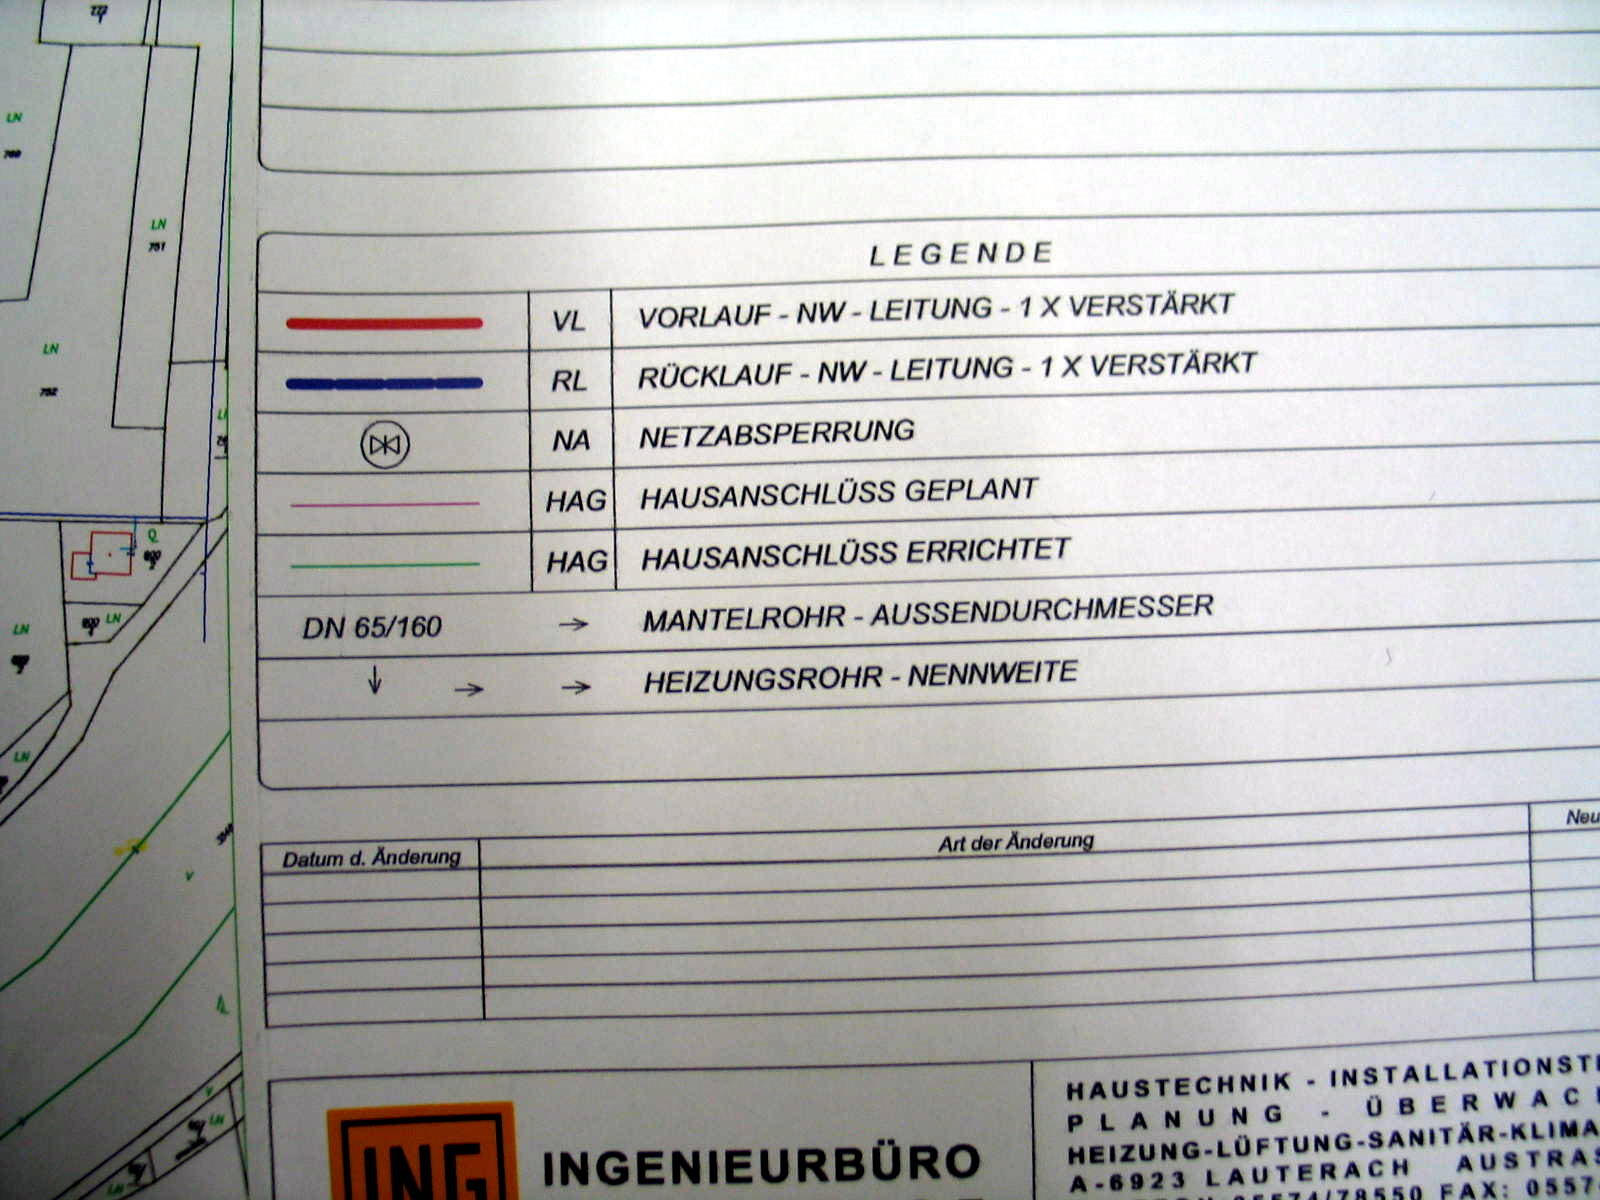 LEGENDE
VL VORLAUF - NW - LEITUNG - 1 X VERSTÄRKT
RL RÜCKLAUF - NW - LEITUNG - 1 X VERSTÄRKT
NA NETZABSPERRUNG
HAG HAUSANSCHLÜSS GEPLANT
HAG HAUSANSCHLÜSS ERRICHTET
DN 65/160 → MANTELROHR - AUSSENDURCHMESSER
↓ → → HEIZUNGSROHR - NENNWEITE
Datum d. Änderung Art der Änderung Neu
ING
INGENIEURBÜRO
HAUSTECHNIK - INSTALLATIONST
PLANUNG - ÜBERWAC
HEIZUNG-LÜFTUNG-SANITÄR-KLIMA
A-6923 LAUTERACH AUSTRAS
05574/78550 FAX: 0557
LN
LN
751
LN
752
Q
LN
LN
LN
V
LN
LN